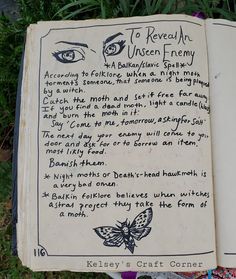 To Reveal An
Unseen Enemy
*A Balkan/Slavic Spell*
According to folklore when a night moth
torments someone, that someone is being plagued
by a witch.
Catch the moth and set it free far away
If you find a dead moth, light a candle
and burn the moth in it.
Say 'Come to me, tomorrow, asking for salt'
The next day your enemy will come to your
door and ask for or to borrow an item,
most likly food.
Banish them.
* Night moths or Death's-head hawkmoth is
a very bad omen.
* Balkin folklore believes when witches
astral project they take the form of
a moth.
116
Kelsey's Craft Corner